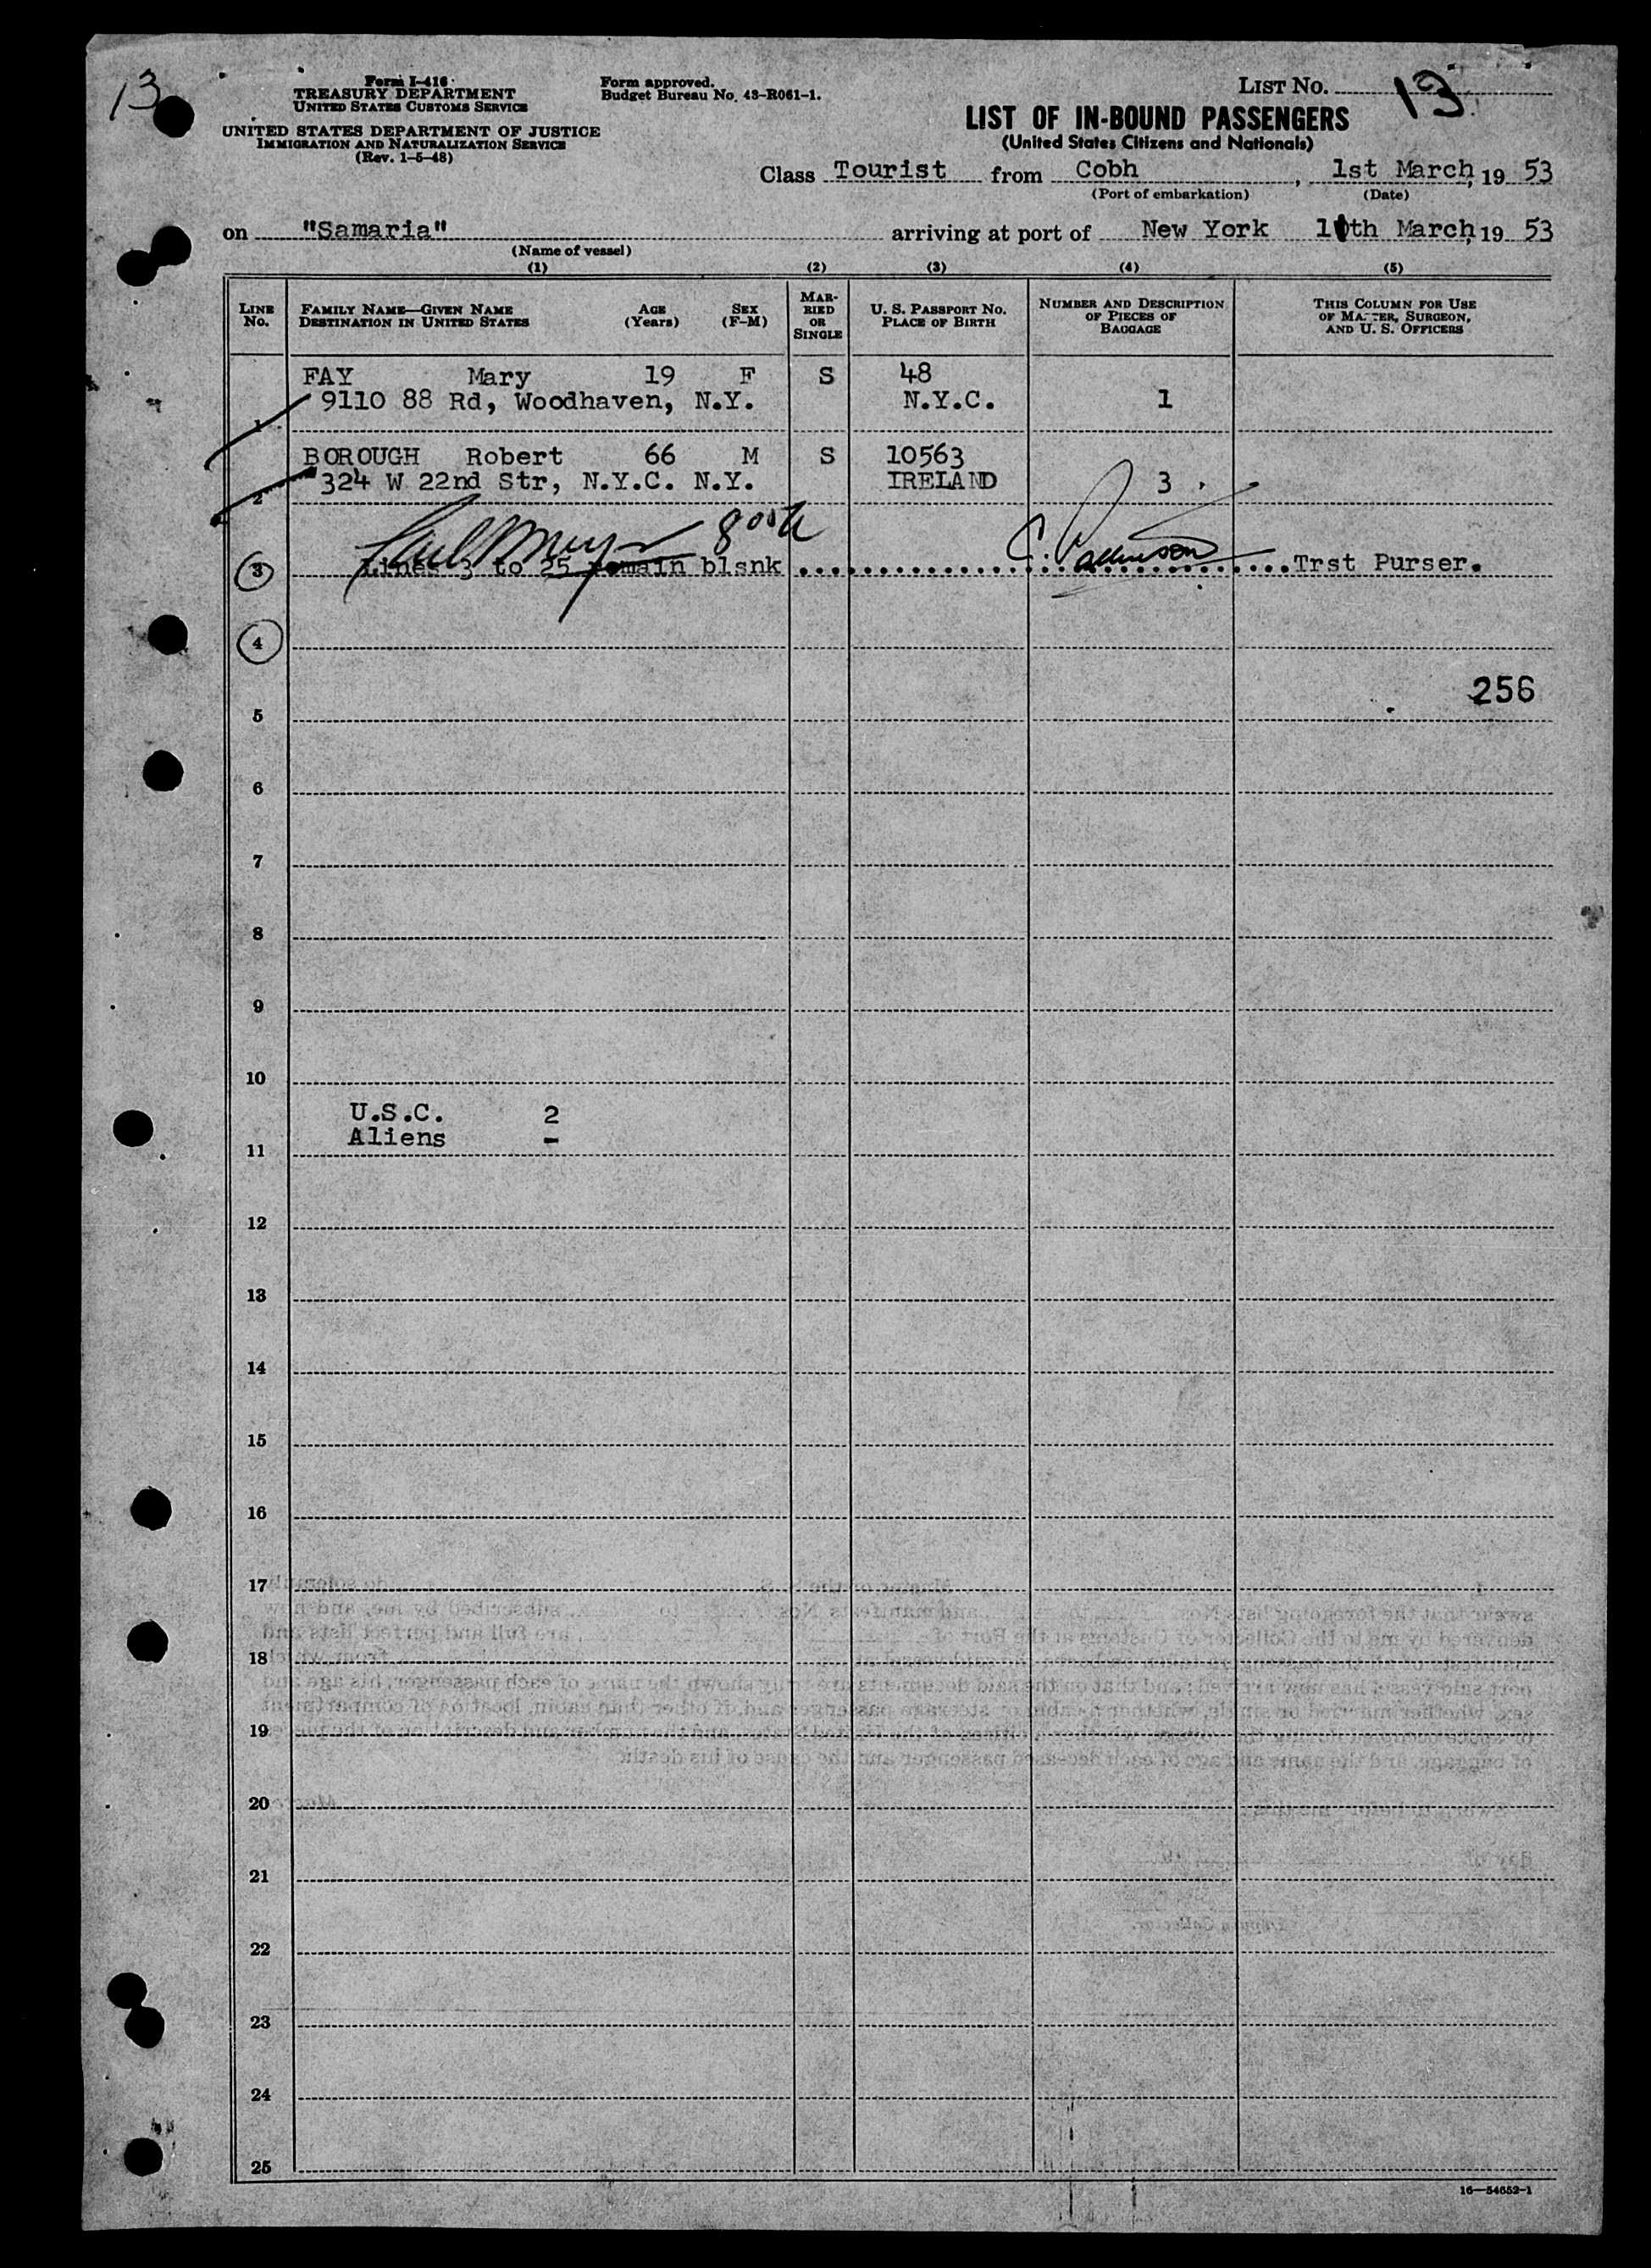 13
Form I-416
TREASURY DEPARTMENT
UNITED STATES CUSTOMS SERVICE
UNITED STATES DEPARTMENT OF JUSTICE
IMMIGRATION AND NATURALIZATION SERVICE
(Rev. 1-5-48)
Form approved.
Budget Bureau No. 43-R061-1.
LIST NO. 13
LIST OF IN-BOUND PASSENGERS
(United States Citizens and Nationals)
Class Tourist from Cobh, 1st March, 19 53
(Port of embarkation) (Date)
on "Samaria" arriving at port of New York 10th March, 19 53
(Name of vessel)
(1) (2) (3) (4) (5)
LINE NO. FAMILY NAME—GIVEN NAME DESTINATION IN UNITED STATES AGE (Years) SEX (F-M) MARRIED OR SINGLE U. S. PASSPORT NO. PLACE OF BIRTH NUMBER AND DESCRIPTION OF PIECES OF BAGGAGE THIS COLUMN FOR USE OF MASTER, SURGEON, AND U. S. OFFICERS
FAY Mary 19 F S 48
1 9110 88 Rd, Woodhaven, N.Y. N.Y.C. 1
BOROUGH Robert 66 M S 10563
2 324 W 22nd Str, N.Y.C. N.Y. IRELAND 3
3 Lines 3 to 25 remain blsnk ........ Trst Purser.
4
256
5
6
7
8
9
10
U.S.C. 2
Aliens -
11
12
13
14
15
16
17
18
19
20
21
22
23
24
25
16—54652-1